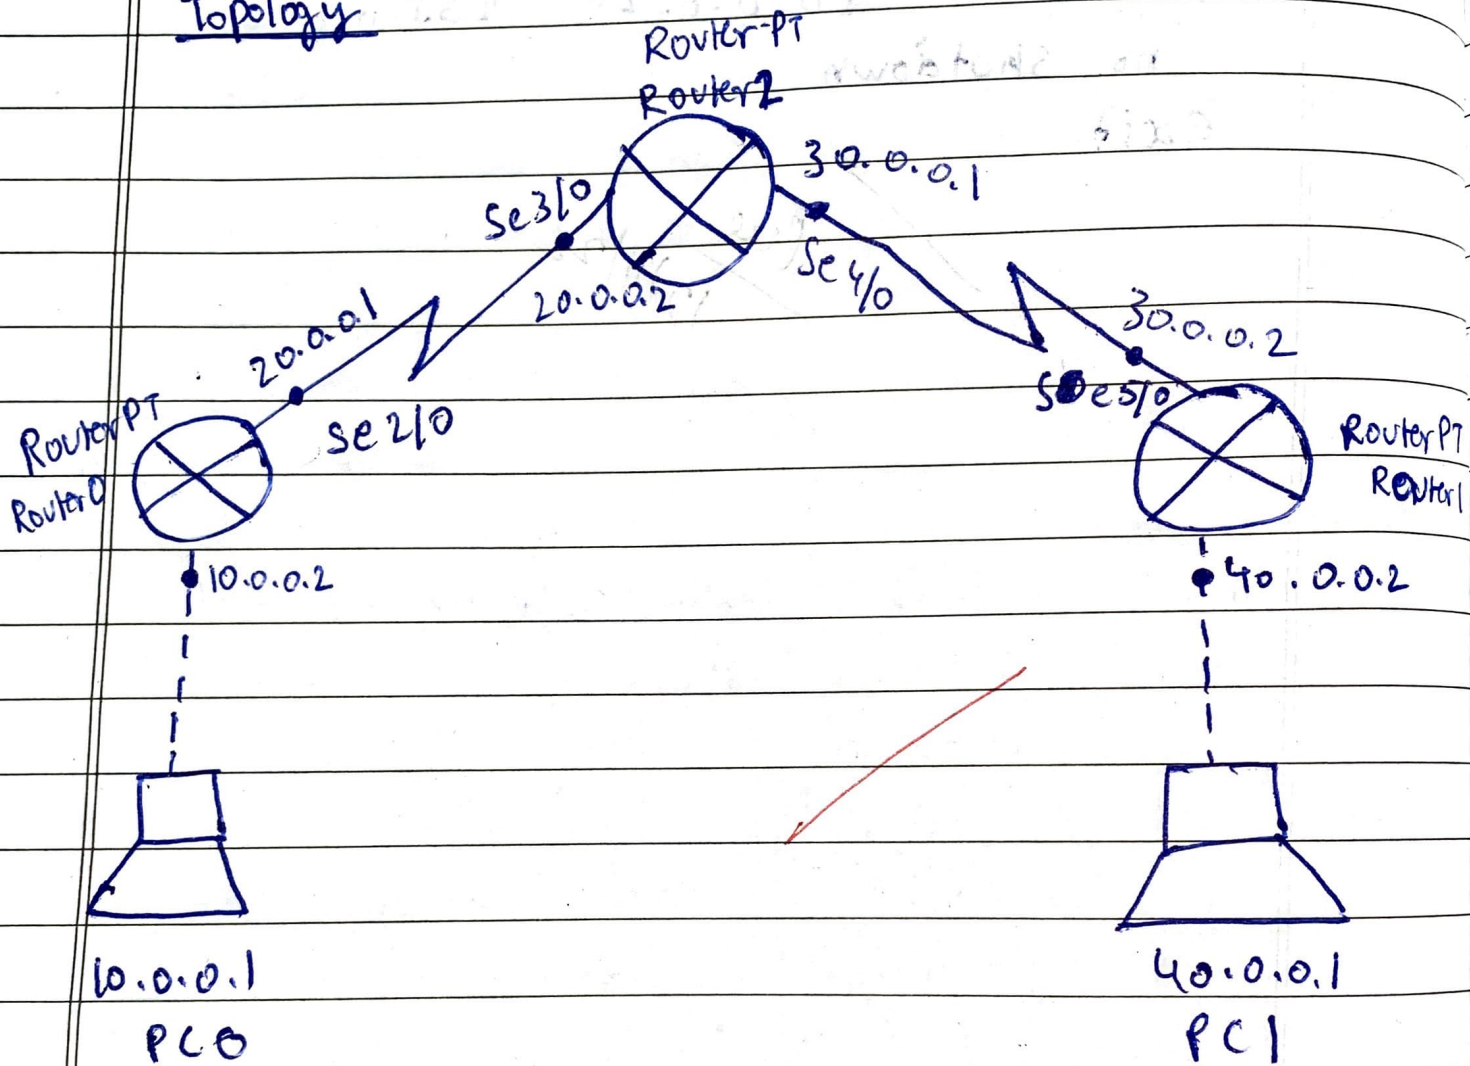 Topology
Router-PT
Router2
30.0.0.1
Se3/0
Se4/0
20.0.0.2
20.0.0.1
30.0.0.2
Se5/0
Se2/0
RouterPT
Router0
RouterPT
Router1
10.0.0.2
40.0.0.2
10.0.0.1
PC0
40.0.0.1
PC1